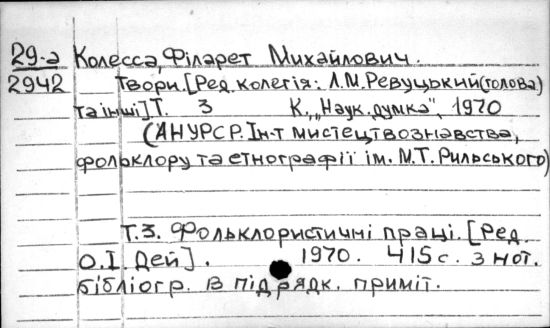 29-а Колесса, Філарет Михайлович.
2942 Твори. [Ред. колегія: Л.М.Ревуцький (голова)
та інші] Т. 3 К., „Наук. думка", 1970
(АН УРСР. Ін-т мистецтвознавства,
фольклору та етнографії ім. М.Т. Рильського)
Т.3. Фольклористичні праці. [Ред.
О.І. Дей]. 1970. 415 с. з нот.
бібліогр. в підрядк. приміт.